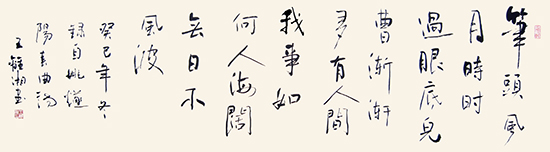 筆頭風
月時時
過眼底兒
曹漸漸
多有人問
我事如
何人海闊
無日不
風波
癸巳年冬
錄自姚燧
陽春曲